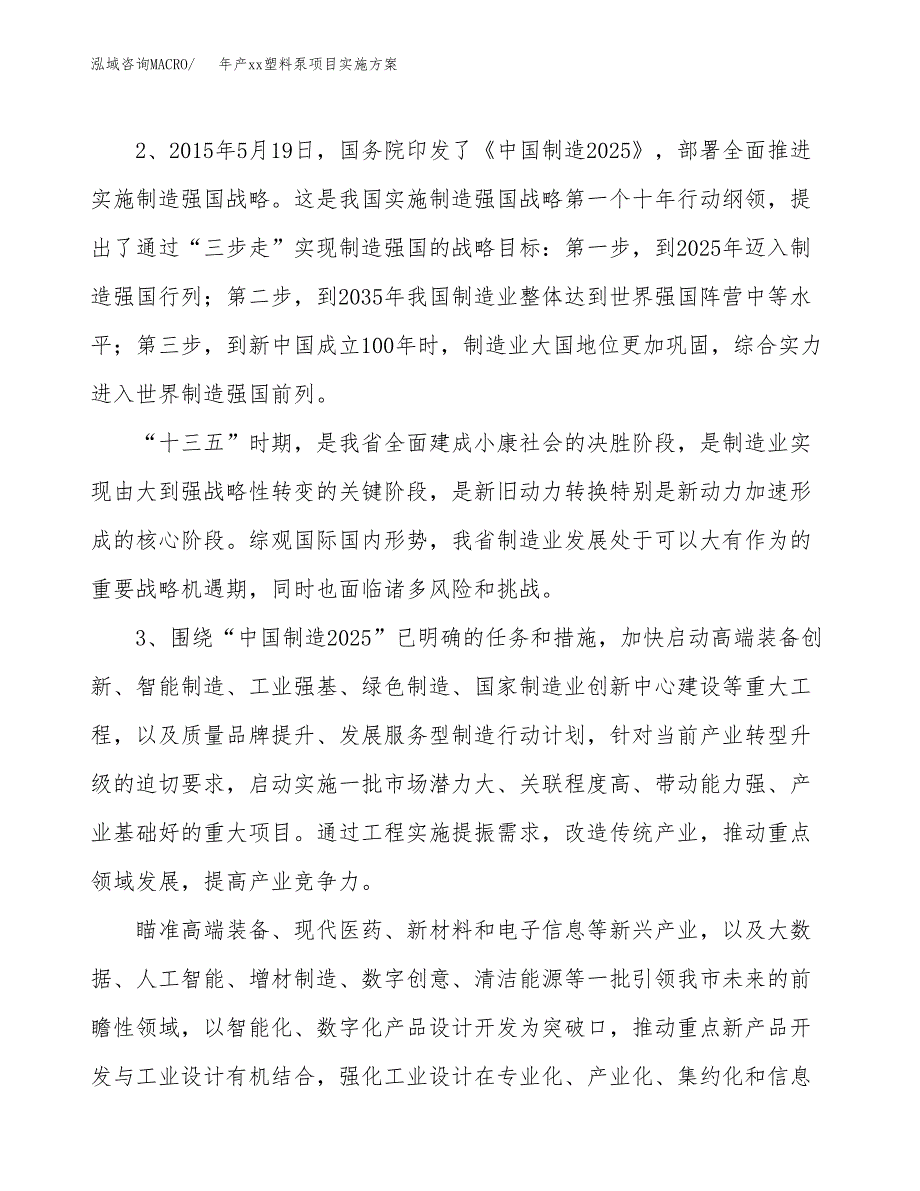 泓域咨询MACRO/ 年产xx塑料泵项目实施方案
2、2015年5月19日，国务院印发了《中国制造2025》，部署全面推进
实施制造强国战略。这是我国实施制造强国战略第一个十年行动纲领，提
出了通过“三步走”实现制造强国的战略目标：第一步，到2025年迈入制
造强国行列；第二步，到2035年我国制造业整体达到世界强国阵营中等水
平；第三步，到新中国成立100年时，制造业大国地位更加巩固，综合实力
进入世界制造强国前列。
“十三五”时期，是我省全面建成小康社会的决胜阶段，是制造业实
现由大到强战略性转变的关键阶段，是新旧动力转换特别是新动力加速形
成的核心阶段。综观国际国内形势，我省制造业发展处于可以大有作为的
重要战略机遇期，同时也面临诸多风险和挑战。
3、围绕“中国制造2025”已明确的任务和措施，加快启动高端装备创
新、智能制造、工业强基、绿色制造、国家制造业创新中心建设等重大工
程，以及质量品牌提升、发展服务型制造行动计划，针对当前产业转型升
级的迫切要求，启动实施一批市场潜力大、关联程度高、带动能力强、产
业基础好的重大项目。通过工程实施提振需求，改造传统产业，推动重点
领域发展，提高产业竞争力。
瞄准高端装备、现代医药、新材料和电子信息等新兴产业，以及大数
据、人工智能、增材制造、数字创意、清洁能源等一批引领我市未来的前
瞻性领域，以智能化、数字化产品设计开发为突破口，推动重点新产品开
发与工业设计有机结合，强化工业设计在专业化、产业化、集约化和信息